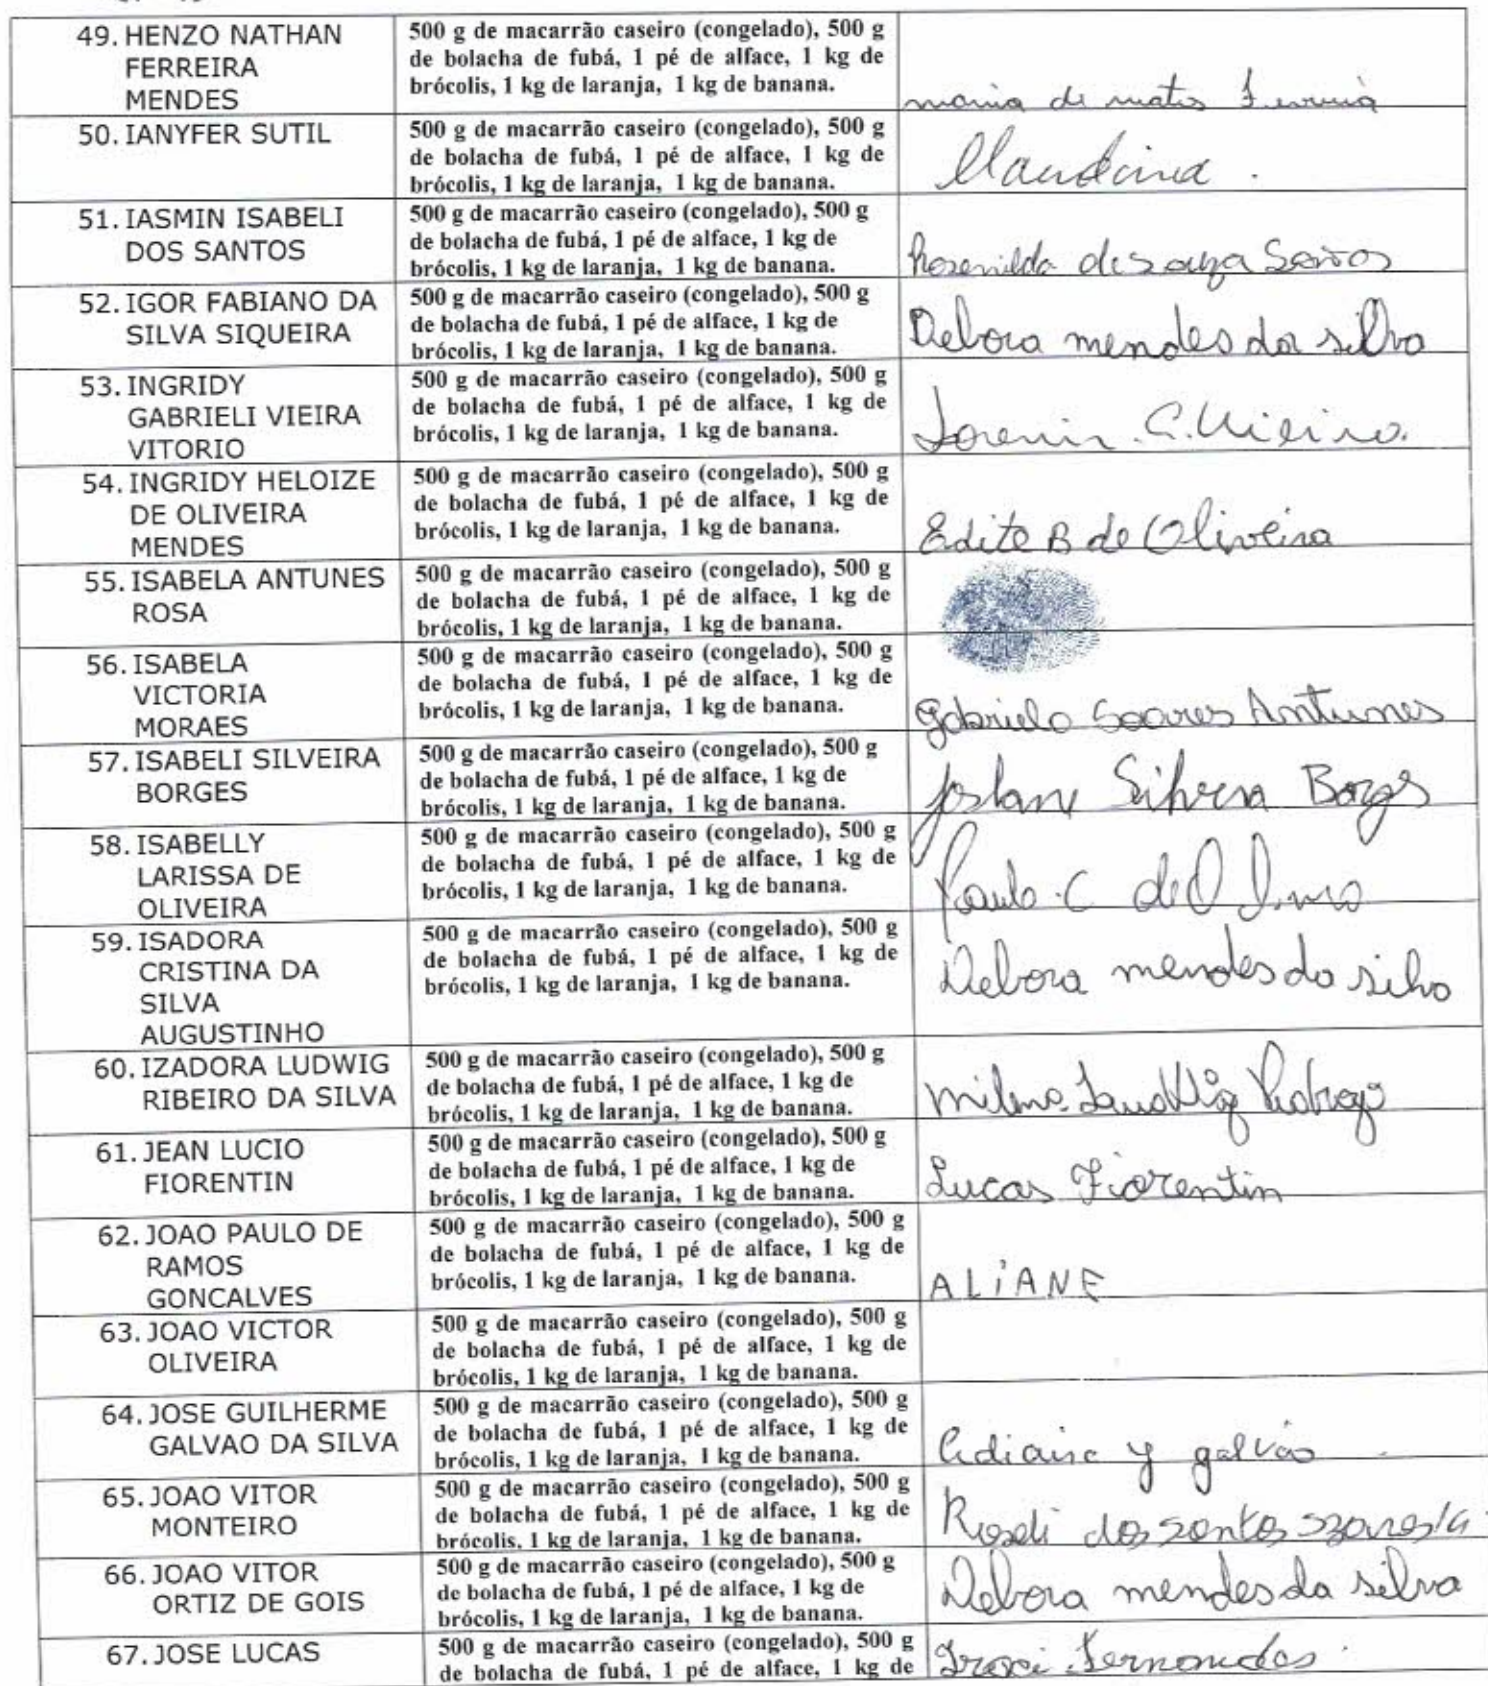 49. HENZO NATHAN
FERREIRA
MENDES
500 g de macarrão caseiro (congelado), 500 g
de bolacha de fubá, 1 pé de alface, 1 kg de
brócolis, 1 kg de laranja, 1 kg de banana.
maria de matos Ferreira
50. IANYFER SUTIL
500 g de macarrão caseiro (congelado), 500 g
de bolacha de fubá, 1 pé de alface, 1 kg de
brócolis, 1 kg de laranja, 1 kg de banana.
Claudina.
51. IASMIN ISABELI
DOS SANTOS
500 g de macarrão caseiro (congelado), 500 g
de bolacha de fubá, 1 pé de alface, 1 kg de
brócolis, 1 kg de laranja, 1 kg de banana.
Rosenilda de Souza Santos
52. IGOR FABIANO DA
SILVA SIQUEIRA
500 g de macarrão caseiro (congelado), 500 g
de bolacha de fubá, 1 pé de alface, 1 kg de
brócolis, 1 kg de laranja, 1 kg de banana.
Debora mendes da silva
53. INGRIDY
GABRIELI VIEIRA
VITORIO
500 g de macarrão caseiro (congelado), 500 g
de bolacha de fubá, 1 pé de alface, 1 kg de
brócolis, 1 kg de laranja, 1 kg de banana.
C. Vieira.
54. INGRIDY HELOIZE
DE OLIVEIRA
MENDES
500 g de macarrão caseiro (congelado), 500 g
de bolacha de fubá, 1 pé de alface, 1 kg de
brócolis, 1 kg de laranja, 1 kg de banana.
Edite B de Oliveira
55. ISABELA ANTUNES
ROSA
500 g de macarrão caseiro (congelado), 500 g
de bolacha de fubá, 1 pé de alface, 1 kg de
brócolis, 1 kg de laranja, 1 kg de banana.
56. ISABELA
VICTORIA
MORAES
500 g de macarrão caseiro (congelado), 500 g
de bolacha de fubá, 1 pé de alface, 1 kg de
brócolis, 1 kg de laranja, 1 kg de banana.
Gabriela Soares Antunes
57. ISABELI SILVEIRA
BORGES
500 g de macarrão caseiro (congelado), 500 g
de bolacha de fubá, 1 pé de alface, 1 kg de
brócolis, 1 kg de laranja, 1 kg de banana.
Borges
58. ISABELLY
LARISSA DE
OLIVEIRA
500 g de macarrão caseiro (congelado), 500 g
de bolacha de fubá, 1 pé de alface, 1 kg de
brócolis, 1 kg de laranja, 1 kg de banana.
Paulo C de
59. ISADORA
CRISTINA DA
SILVA
AUGUSTINHO
500 g de macarrão caseiro (congelado), 500 g
de bolacha de fubá, 1 pé de alface, 1 kg de
brócolis, 1 kg de laranja, 1 kg de banana.
Debora mendes da silva
60. IZADORA LUDWIG
RIBEIRO DA SILVA
500 g de macarrão caseiro (congelado), 500 g
de bolacha de fubá, 1 pé de alface, 1 kg de
brócolis, 1 kg de laranja, 1 kg de banana.
61. JEAN LUCIO
FIORENTIN
500 g de macarrão caseiro (congelado), 500 g
de bolacha de fubá, 1 pé de alface, 1 kg de
brócolis, 1 kg de laranja, 1 kg de banana.
Lucas Fiorentin
62. JOAO PAULO DE
RAMOS
GONCALVES
500 g de macarrão caseiro (congelado), 500 g
de bolacha de fubá, 1 pé de alface, 1 kg de
brócolis, 1 kg de laranja, 1 kg de banana.
ALiANE
63. JOAO VICTOR
OLIVEIRA
500 g de macarrão caseiro (congelado), 500 g
de bolacha de fubá, 1 pé de alface, 1 kg de
brócolis, 1 kg de laranja, 1 kg de banana.
64. JOSE GUILHERME
GALVAO DA SILVA
500 g de macarrão caseiro (congelado), 500 g
de bolacha de fubá, 1 pé de alface, 1 kg de
brócolis, 1 kg de laranja, 1 kg de banana.
galvão
65. JOAO VITOR
MONTEIRO
500 g de macarrão caseiro (congelado), 500 g
de bolacha de fubá, 1 pé de alface, 1 kg de
brócolis, 1 kg de laranja, 1 kg de banana.
Roseli dos santos
66. JOAO VITOR
ORTIZ DE GOIS
500 g de macarrão caseiro (congelado), 500 g
de bolacha de fubá, 1 pé de alface, 1 kg de
brócolis, 1 kg de laranja, 1 kg de banana.
Debora mendes da silva
67. JOSE LUCAS
500 g de macarrão caseiro (congelado), 500 g
de bolacha de fubá, 1 pé de alface, 1 kg de
Fernandes